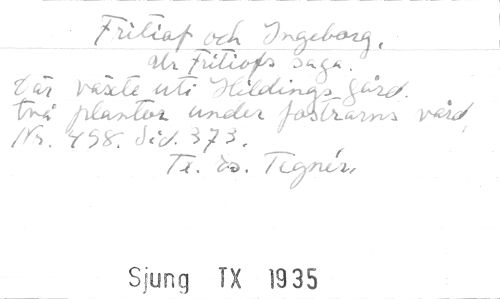 Fritiof och Ingeborg.
Ur Fritiofs saga.
Där växte uti Hildings gård.
två plantor under fostrarns vård,
Nr. 458. Sid. 373.
Tegnér.
Sjung TX 1935